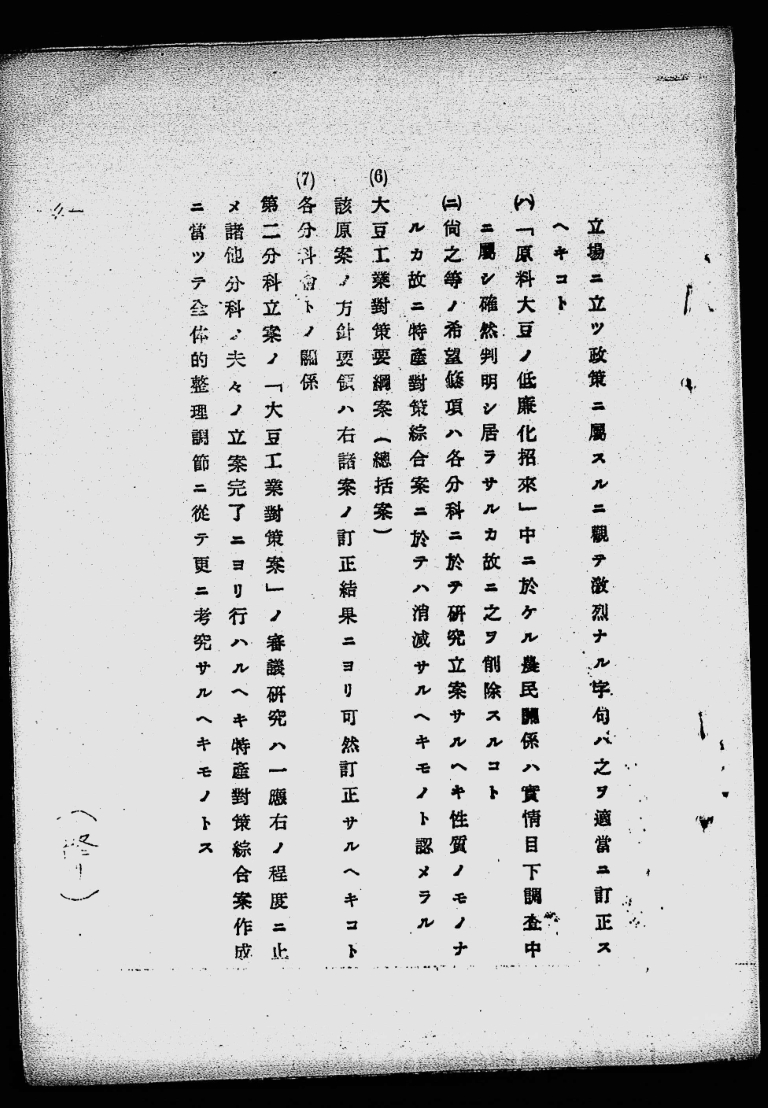 立場ニ立ツ政策ニ屬スルニ觀テ激烈ナル字句ハ之ヲ適當ニ訂正ス
ヘキコト
(ハ)「原料大豆ノ低廉化招來」中ニ於ケル農民關係ハ實情目下調査中
ニ屬シ確然判明シ居ラサルカ故ニ之ヲ削除スルコト
(ニ)尙之等ノ希望條項ハ各分科ニ於テ研究立案サルヘキ性質ノモノナ
ルカ故ニ特產對策綜合案ニ於テハ消滅サルヘキモノト認メラル
(6)大豆工業對策要綱案(總括案)
該原案ノ方針要領ハ右諸案ノ訂正結果ニヨリ可然訂正サルヘキコト
(7)各分科會トノ關係
第二分科立案ノ「大豆工業對策案」ノ審議研究ハ一應右ノ程度ニ止
メ諸他分科ノ夫々ノ立案完了ニヨリ行ハルヘキ特產對策綜合案作成
ニ當ツテ全体的整理調節ニ從テ更ニ考究サルヘキモノトス